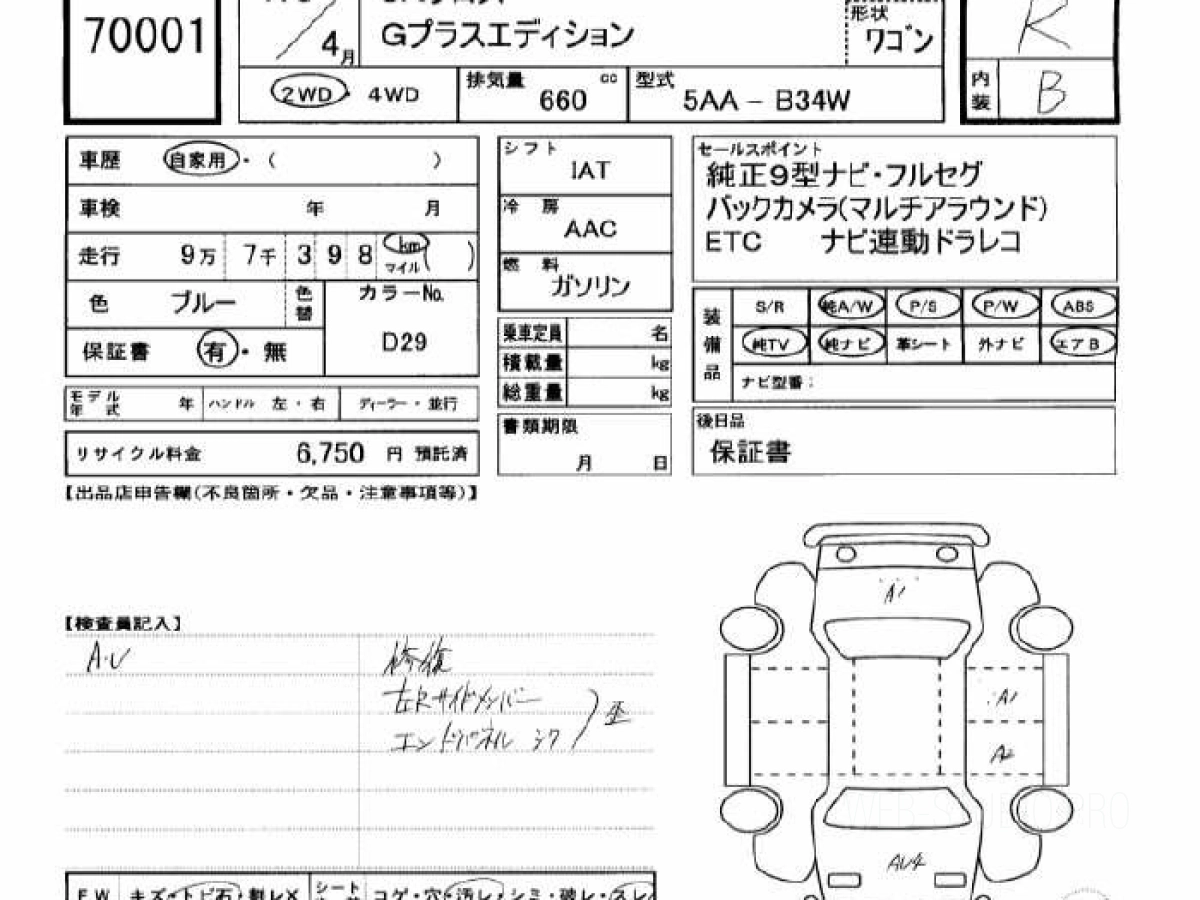 70001
4月
Gプラスエディション
形状
ワゴン
R
2WD・4WD
排気量 cc
660
型式
5AA - B34W
内装
B
車歴 自家用・( )
車検 年 月
走行 9万 7千 3 9 8 km マイル( )
色 ブルー 色替
カラーNo.
D29
保証書 有・無
モデル年式 年 ハンドル 左・右 ディーラー・並行
リサイクル料金 6,750 円 預託済
シフト
IAT
冷房
AAC
燃料
ガソリン
乗車定員 名
積載量 kg
総重量 kg
書類期限
月 日
セールスポイント
純正9型ナビ・フルセグ
バックカメラ(マルチアラウンド)
ETC ナビ連動ドラレコ
装備品
S/R 純A/W P/S P/W ABS
純TV 純ナビ 革シート 外ナビ エアB
ナビ型番:
後日品
保証書
【出品店申告欄(不良箇所・欠品・注意事項等)】
【検査員記入】
A・U
修復
左Rサイドメンバー
エンドパネル
歪
A1
A1
A2
AU4
WEB-STUDIOPRO
FW キズ・トビ石・割レX シート コゲ・穴・汚レ・シミ・破レ・スレ